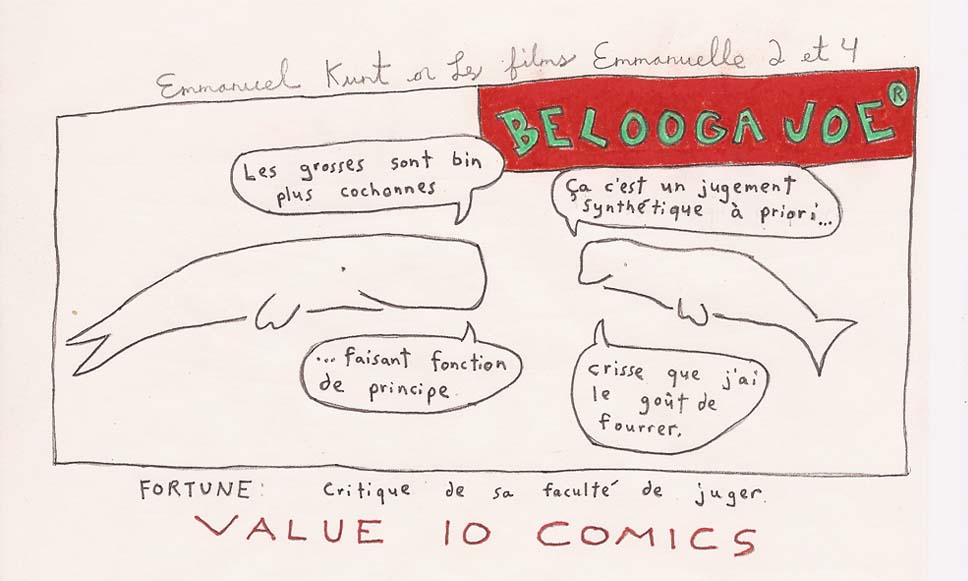 Emmanuel Kunt or Les films Emmanuelle 2 et 4
BELOOGA JOE®
Les grosses sont bin
plus cochonnes
Ça c'est un jugement
synthétique à priori...
... faisant fonction
de principe.
crisse que j'ai
le goût de
fourrer.
FORTUNE: Critique de sa faculté de juger.
VALUE 10 COMICS